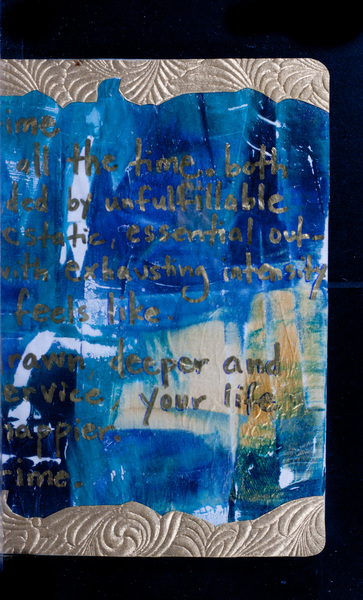 ime
all the time. both
ded by unfulfillable
cstatic, essential out-
with exhausting intensity
feels like.
rawn deeper and
ervice, your life
happier.
time.